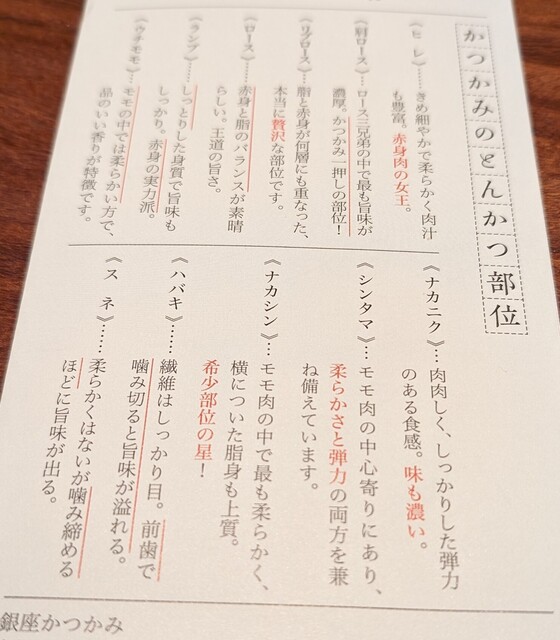 かつかみのとんかつ部位
《ヒレ》……きめ細やかで柔らかく肉汁
も豊富。赤身肉の女王。
《肩ロース》…ロース三兄弟の中で最も旨味が
濃厚。かつかみ一押しの部位!
《リブロース》…脂と赤身が何層にも重なった、
本当に贅沢な部位です。
《ロース》……赤身と脂のバランスが素晴
らしい。王道の旨さ。
《ランプ》……しっとりした身質で旨味も
しっかり。赤身の実力派。
《ウチモモ》…モモの中では柔らかい方で、
品のいい香りが特徴です。
《ナカニク》…肉肉しく、しっかりした弾力
のある食感。味も濃い。
《シンタマ》…モモ肉の中心寄りにあり、
柔らかさと弾力の両方を兼
ね備えています。
《ナカシン》…モモ肉の中で最も柔らかく、
横についた脂身も上質。
希少部位の星!
《ハバキ》……繊維はしっかり目。前歯で
噛み切ると旨味が溢れる。
《スネ》……柔らかくはないが噛み締める
ほどに旨味が出る。
銀座かつかみ